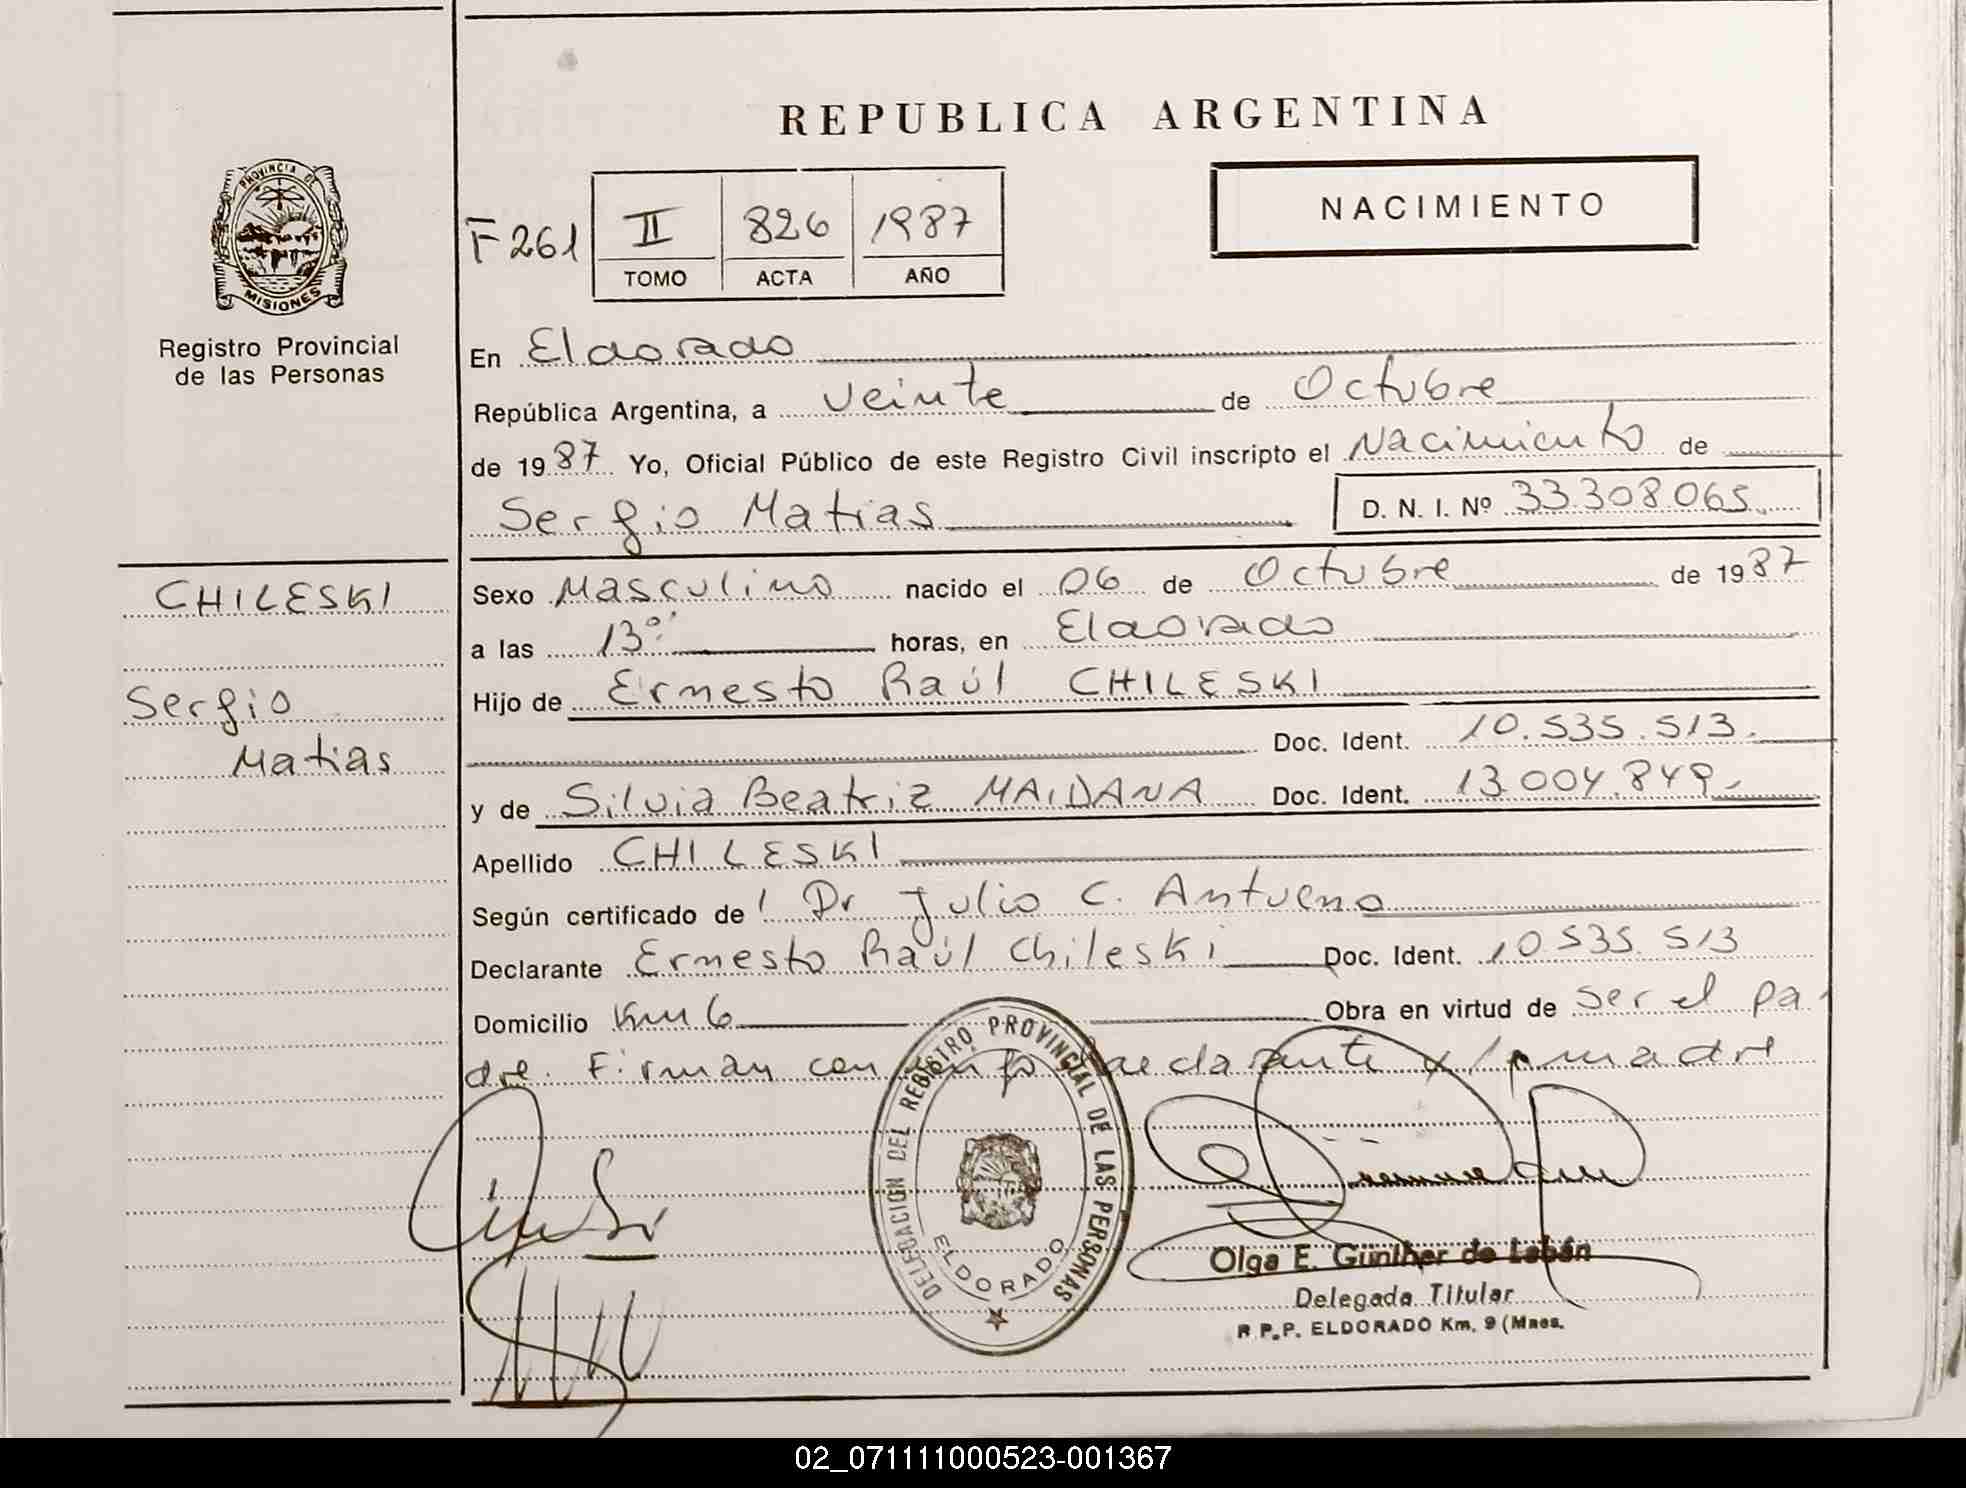 REPUBLICA ARGENTINA
PROVINCIA DE
MISIONES
Registro Provincial
de las Personas
NACIMIENTO
F 261
II 826 1987
TOMO ACTA AÑO
En Eldorado
República Argentina, a veinte de Octubre
de 1987 Yo, Oficial Público de este Registro Civil inscripto el Nacimiento de
Sergio Matias D. N. I. Nº 33.308.065
CHILESKI
Sergio
Matias
Sexo Masculino nacido el 06 de Octubre de 1987
a las 13 horas, en Eldorado
Hijo de Ernesto Raúl CHILESKI
Doc. Ident. 10.535.513.
y de Silvia Beatriz MAIDANA Doc. Ident. 13.004.849.
Apellido CHILESKI
Según certificado de Dr Julio C. Antueno
Declarante Ernesto Raúl Chileski Doc. Ident. 10.535.513
Domicilio Km 6 Obra en virtud de ser el pa
dre. Firman con declarante y la madre
DELEGACION DEL REGISTRO PROVINCIAL DE LAS PERSONAS
ELDORADO
Olga E. Günther de Labán
Delegada Titular
R.P.P. ELDORADO Km. 9 (Mnes.
02_071111000523-001367